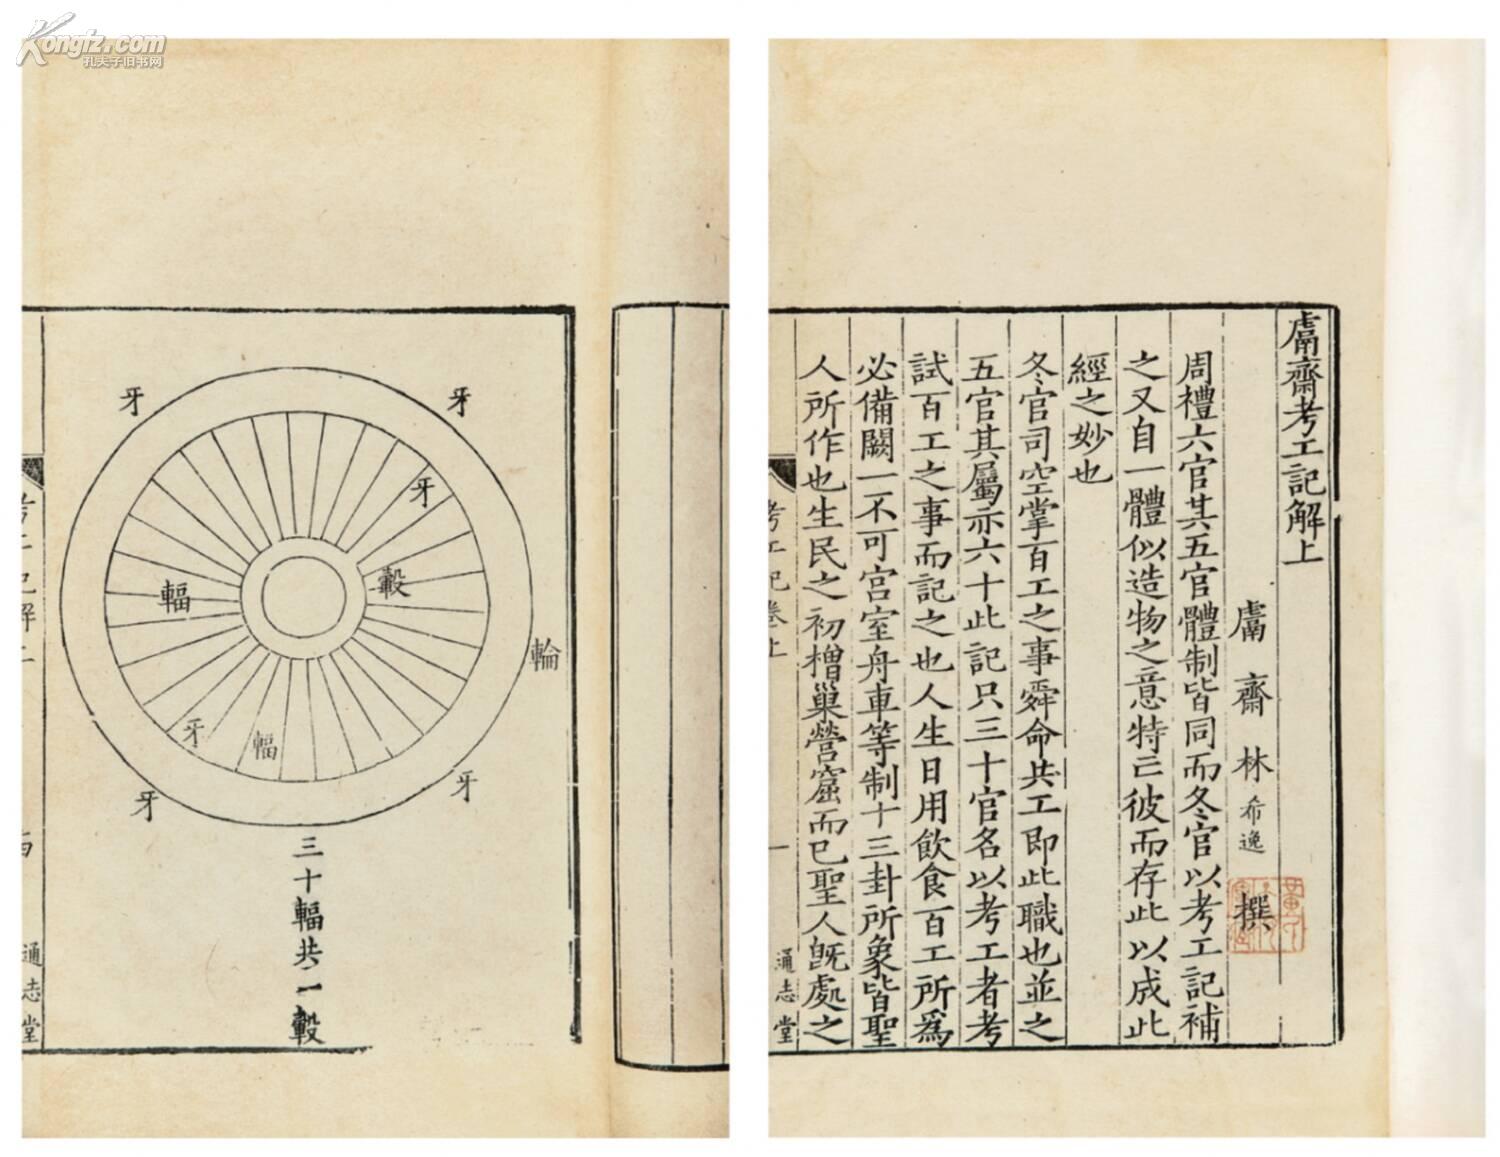 Kongfz.com
孔夫子旧书网
鬳齋考工記解上
鬳齋林希逸撰
周禮六官其五官體制皆同而冬官以考工記補
之又自一體似造物之意特亡彼而存此以成此
經之妙也
冬官司空掌百工之事舜命共工即此職也並之
五官其屬亦六十此記只三十官名以考工者考
試百工之事而記之也人生日用飲食百工所爲
必備闕一不可宮室舟車等制十三卦所象皆聖
人所作也生民之初橧巢營窟而已聖人旣處之
考工記卷上
一
通志堂
牙
牙
牙
轂
輻
輪
牙
輻
牙
牙
三十輻共一轂
通志堂